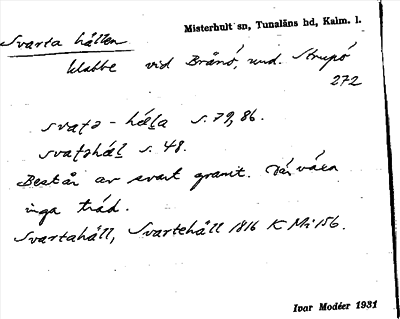 Misterhult sn, Tunaläns hd, Kalm. l.
Svarta hällen
klabbe vid Brånö, und. Strupö
272
svaʈə - hæḷa s. 79, 86.
svaʈəhæḷ s. 48.
Består av svart granit. Där växa
inga träd.
Svartahäll, Svartehäll 1816 K Mi 156.
Ivar Modéer 1931